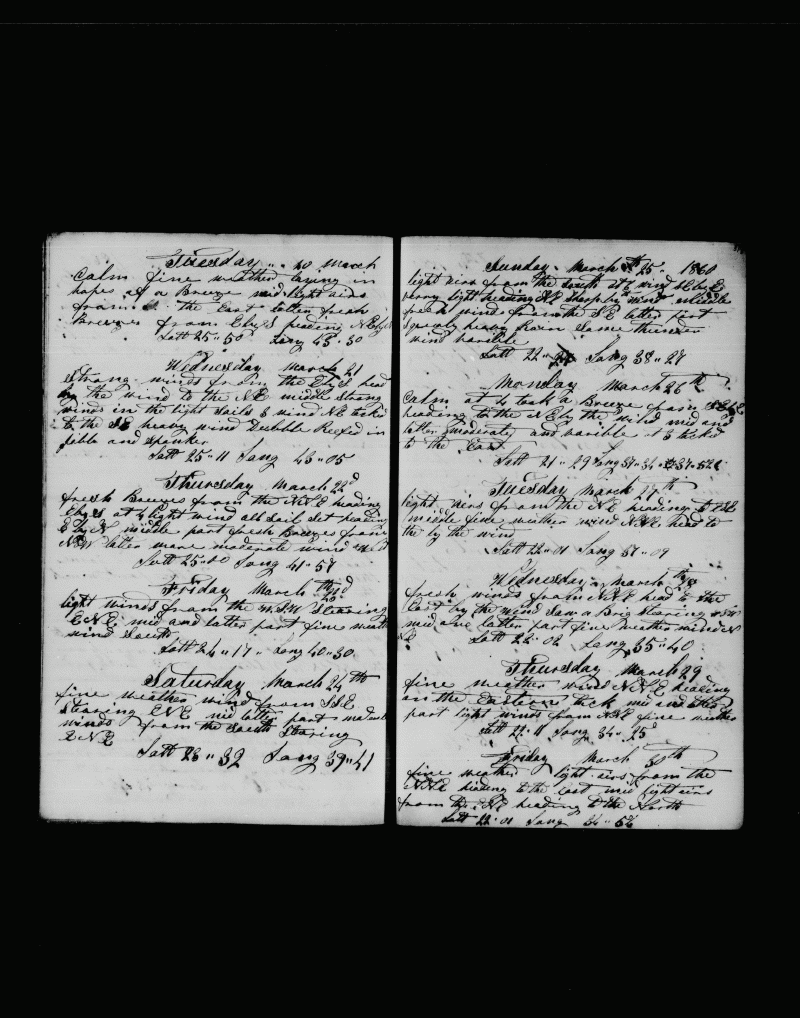 Tuesday 20 March
Calm fine weather laying in
hopes of a Breeze mid light airs
from the East latter fresh
Breezes from E by S heading N E by E
Latt 25 " 50 Long 43 " 30
Wednesday March 21
Strong winds from the E by S head
by the wind to the NE middle strong
winds in the light sails & wind NE tackd
to the SE heavy wind Dubble Reefed in
gibb and spanker
Latt 25 " 11 Long 43 " 05
Thursday March 22d
fresh Breezes from the NNE heading
E by S at 4 light wind all sail set heading
E by N middle part fresh Breezes from
NNW latter more moderate wind
Latt 25 Long 41 " 57
Friday March 23d
light winds from the W.S.W Stearing
E N E mid and latter part fine weath
wind South
Latt 24 " 17 " Long 40 " 30
Saturday March 24th
fine weather wind from SSE
Stearing ENE mid latter part
winds from the South Stearing
E N E
Latt 23 " 32 Long 39 " 41
Sunday March 25 1860
light airs from the South at wind
very light heading mid middle
fresh winds from the SE latter part
Squaly heavy Rain Some thunder
wind varible
Latt 22 " Long 38 " 27
Monday March 26th
Calm at 4 took a Breeze from
heading to the N E by the wind mid and
latter moderate and varible at 5 tacked
to the East
Latt 21 " 29 Long 37 "
Tuesday March 27th
light airs from the NE heading to
middle fine weather wind NNE head to
the by the wind
Latt 22 " 01 Long 37 " 09
Wednesday March 28th
fresh winds from NNE head to the
East by the wind Saw a Brig Stearing
mid and latter part fine weather wind N
E
Latt 22 " 02 Long 35 " 40
Thursday March 29
fine weather wind NNE heading
on the Eastern tack mid and latter
part light winds from NNE fine weather
Latt 22 " 11 Long 34 " 25
Friday March 30th
fine weather light airs from the
NNE heading to the east mid light airs
from the NE heading to the North
Latt 22 " 01 Long 34 " 56